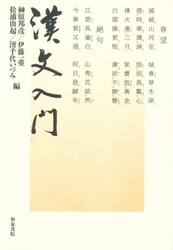 春望
國破山河在 城春草木深
感時花濺涙 恨別鳥驚心
烽火連三月 家書抵萬金
白頭搔更短 渾欲不勝簪
絶句
江碧鳥逾白 山青花欲然
今春看又過 何日是歸年
漢文入門
榊原邦彦/伊藤一重
松浦由起/濱千代いづみ 編
和泉書院